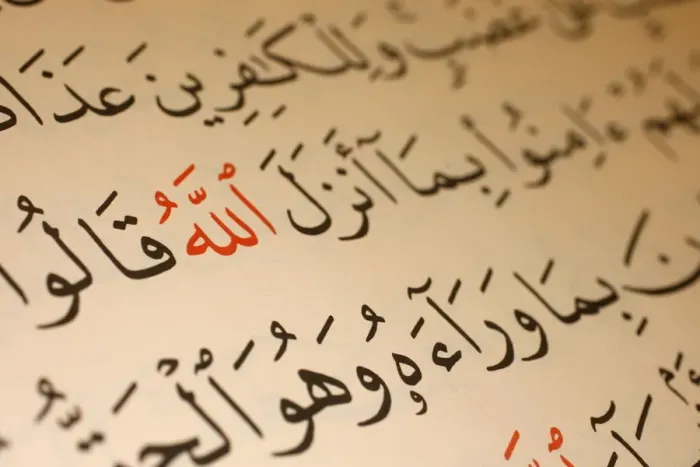 عَلَىٰ غَضَبٍ وَلِلْكَٰفِرِينَ عَذَا
لَهُمْ ءَامِنُوا بِمَآ أَنزَلَ ٱللَّهُ قَالُوا
نَ بِمَا وَرَآءَهُۥ وَهُوَ ٱلْحَ